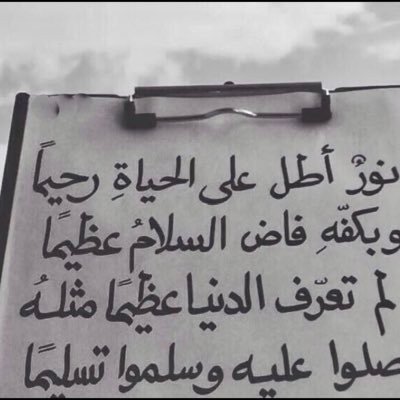 نورٌ أطل على الحياةِ رحيما
وبكفّهِ فاض السلامُ عظيمًا
لم تعرّف الدنيا عظيمًا مثلهُ
صلوا عليه وسلموا تسليمًا